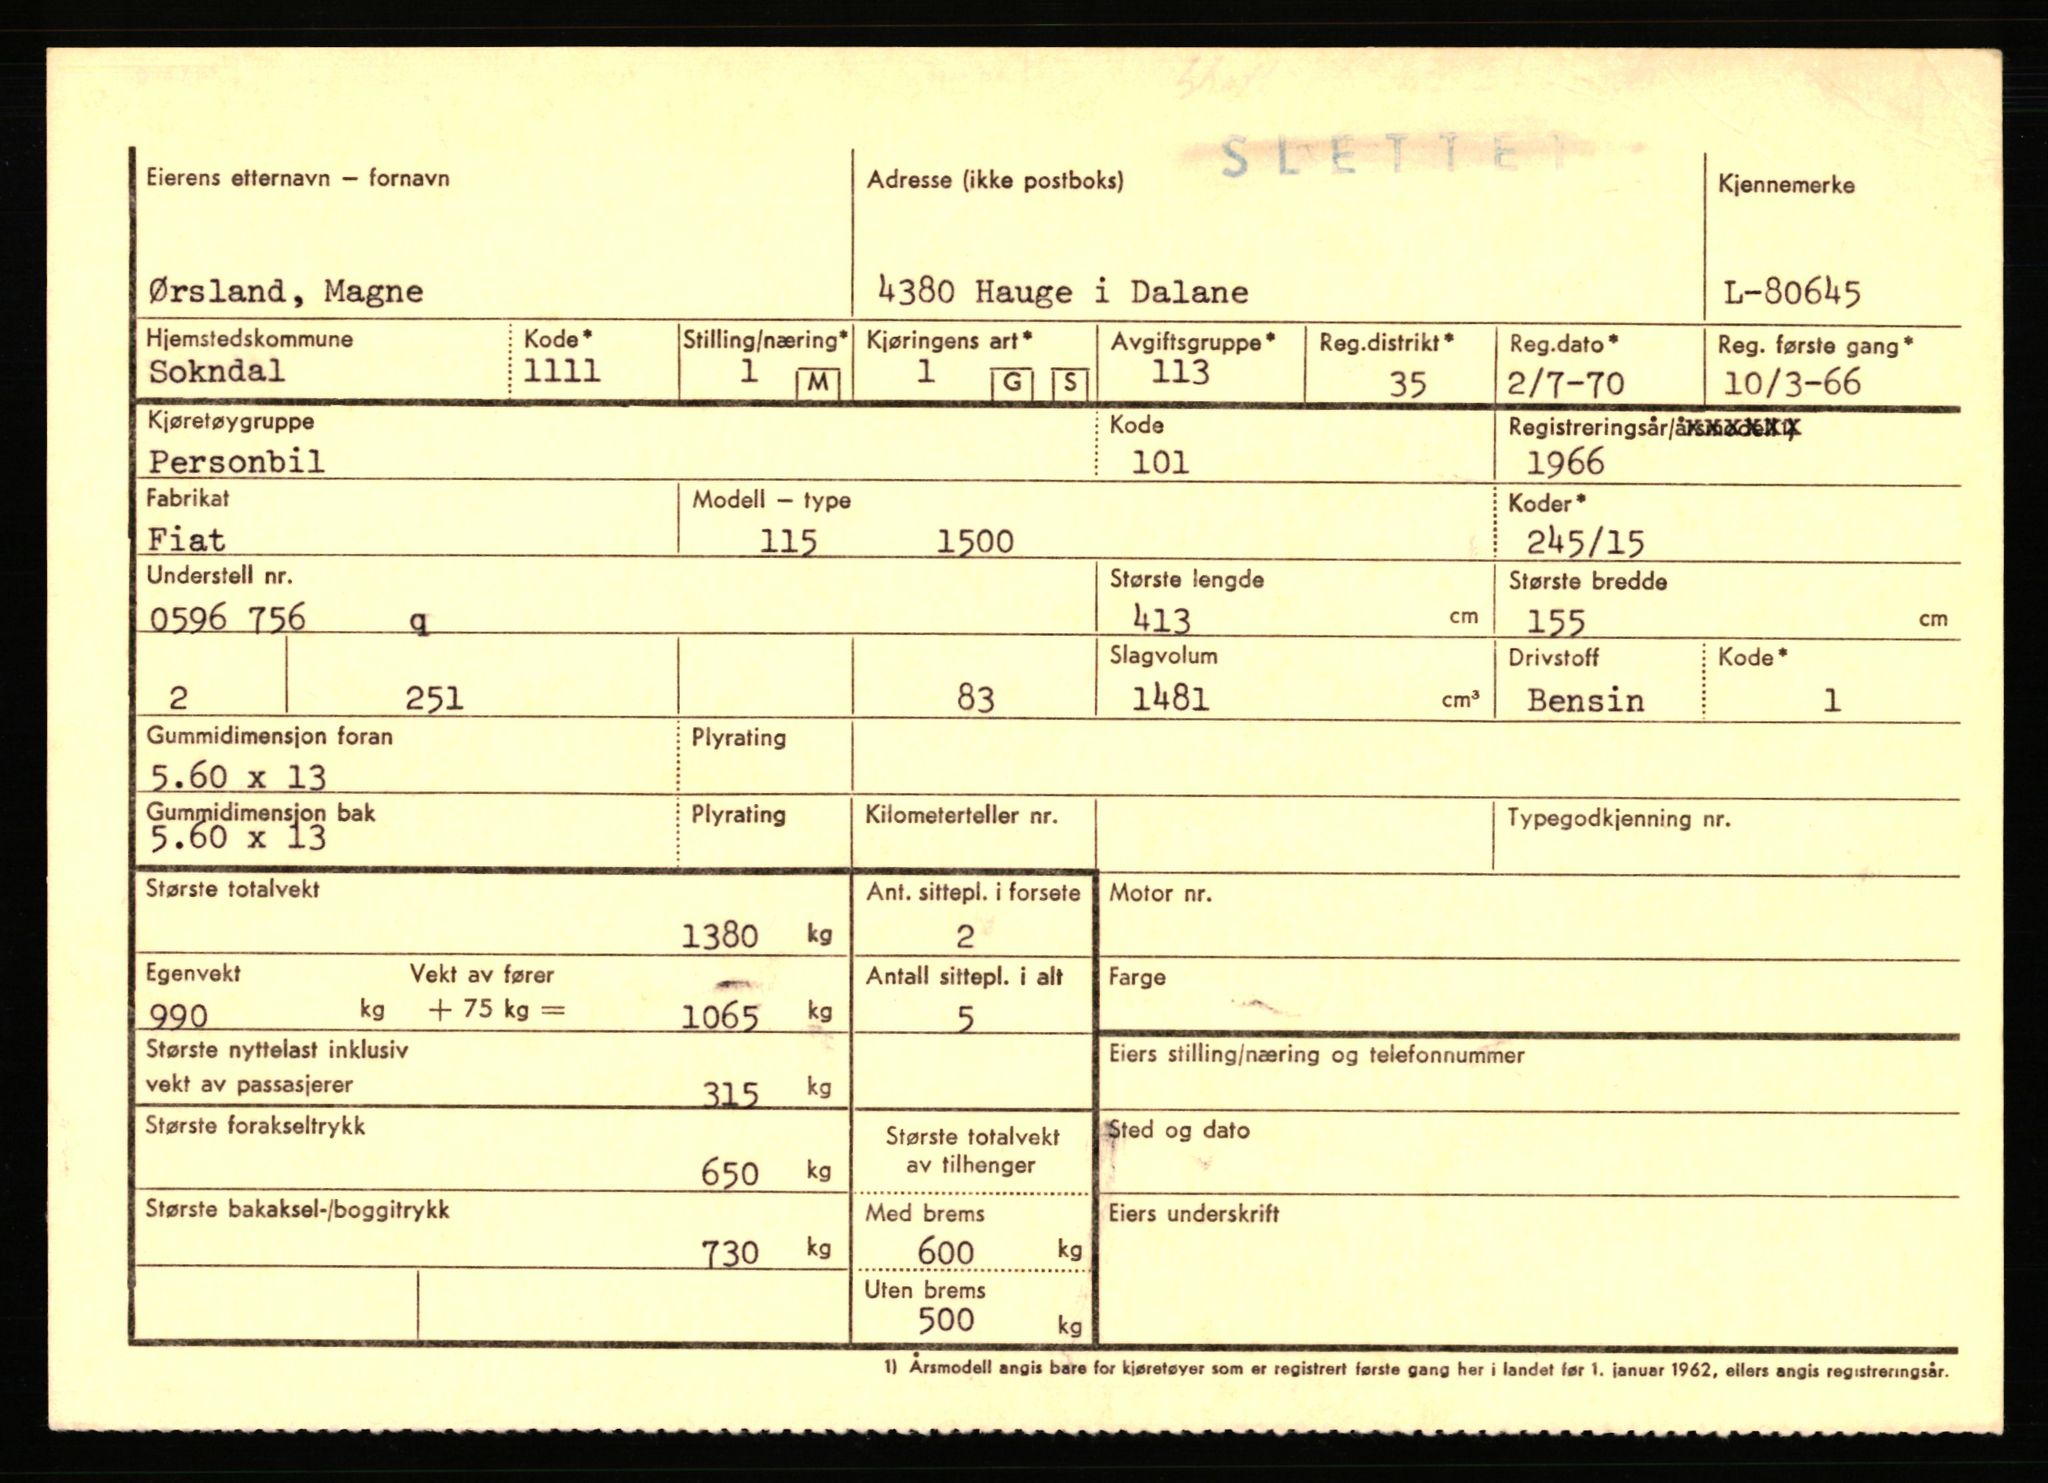 SLETTET
Eierens etternavn – fornavn
Adresse (ikke postboks)
Kjennemerke
Ørsland, Magne
4380 Hauge i Dalane
L-80645
Hjemstedskommune
Kode*
Stilling/næring*
Kjøringens art*
Avgiftsgruppe*
Reg.distrikt*
Reg.dato*
Reg. første gang*
Sokndal
1111
1 M
1 G S
113
35
2/7-70
10/3-66
Kjøretøygruppe
Kode
Registreringsår/årsmodell 1)
Personbil
101
1966
Fabrikat
Modell – type
Koder*
Fiat
115 1500
245/15
Understell nr.
Største lengde
Største bredde
0596 756 q
413 cm
155 cm
Slagvolum
Drivstoff
Kode*
2
251
83
1481 cm³
Bensin
1
Gummidimensjon foran
Plyrating
5.60 x 13
Gummidimensjon bak
Plyrating
Kilometerteller nr.
Typegodkjenning nr.
5.60 x 13
Største totalvekt
Ant. sittepl. i forsete
Motor nr.
1380 kg
2
Egenvekt
Vekt av fører
Antall sittepl. i alt
Farge
990 kg + 75 kg = 1065 kg
5
Største nyttelast inklusiv
vekt av passasjerer
315 kg
Eiers stilling/næring og telefonnummer
Største forakseltrykk
650 kg
Største totalvekt
av tilhenger
Sted og dato
Største bakaksel-/boggitrykk
730 kg
Med brems
600 kg
Eiers underskrift
Uten brems
500 kg
1) Årsmodell angis bare for kjøretøyer som er registrert første gang her i landet før 1. januar 1962, ellers angis registreringsår.